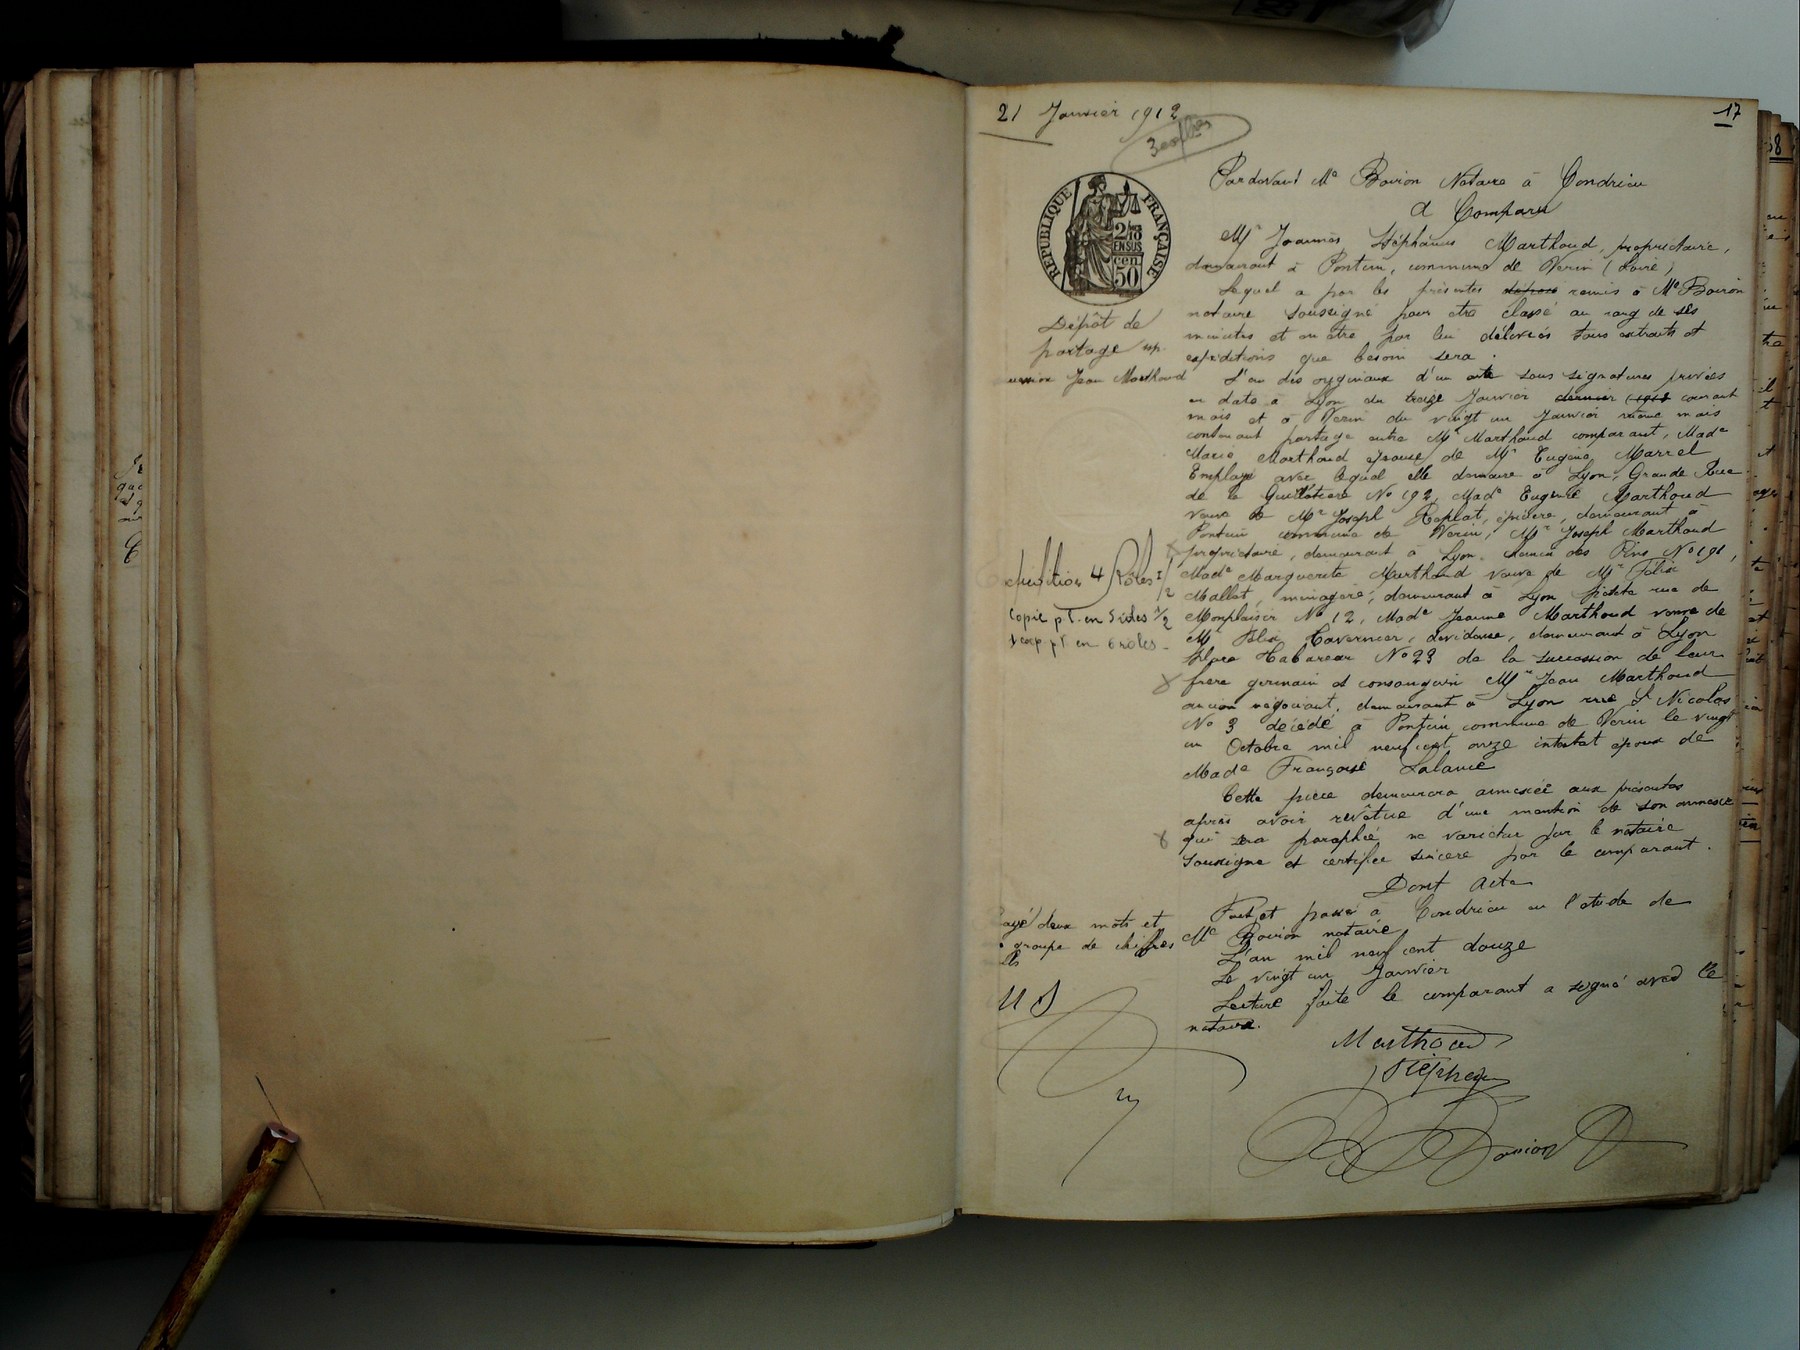 21 Janvier 1912
17
3 copies
Pardevant Me Boiron Notaire à Condrieu
A Comparu
RÉPUBLIQUE FRANÇAISE
2/10
EN SUS
cen
50
Mr Joannès Stéphanus Marthoud, propriétaire,
demeurant à Pontin, commune de Verin (Loire)
Lequel a par les présentes déposé remis à Me Boiron
notaire soussigné pour être classé au rang de ses
minutes et en être par lui délivrés tous extraits et
expéditions que besoin sera.
Dépôt de
partage
Jean Marthoud
L'un des originaux d'un acte sous signatures privées
en date à Lyon du treize Janvier dernier (1912 courant
mois et à Verin du vingt un Janvier même mois
contenant partage entre Mr Marthoud comparant, Made
Marie Marthoud épouse de Mr Eugène Marrel
Employé avec lequel elle demeure à Lyon, Grande Rue
de la Guillotière No 192, Made Eugenie Marthoud
veuve de Mr Joseph Replat, épicière, demeurant à
Pontin commune de Verin, Mr Joseph Marthoud
propriétaire, demeurant à Lyon. Chemin des Pins No 191,
Made Marguerite Marthoud veuve de Mr Félix
Mallet, ménagère, demeurant à Lyon petite rue de
Monplaisir No 12, Made Jeanne Marthoud veuve de
Mr Félix Tavernier, dévideuse, demeurant à Lyon
No 23 de la succession de leur
frère germain et consanguin Mr Jean Marthoud
ancien négociant, demeurant à Lyon rue St Nicolas
No 3 décédé à Pontin commune de Verin le vingt
un Octobre mil neuf cent onze intestat époux de
Made Françoise Lalance
Expédition 4 Rôles 1/2
Copie pT. en 5 rôles 1/2
1 exp pT en 6 rôles
Cette pièce demeurera annexée aux présentes
après avoir revêtue d'une mention de son annexe
qui sera paraphée ne varietur par le notaire
soussigné et certifiée sincère par le comparant.
Dont Acte
Fait et passé à Condrieu en l'étude de
Me Boiron notaire
L'an mil neuf cent douze
Le vingt un Janvier
Lecture faite le comparant a signé avec le
notaire.
Rayé deux mots et
groupe de chiffres
nuls
M S
Marthoud
Stéphane
Boiron